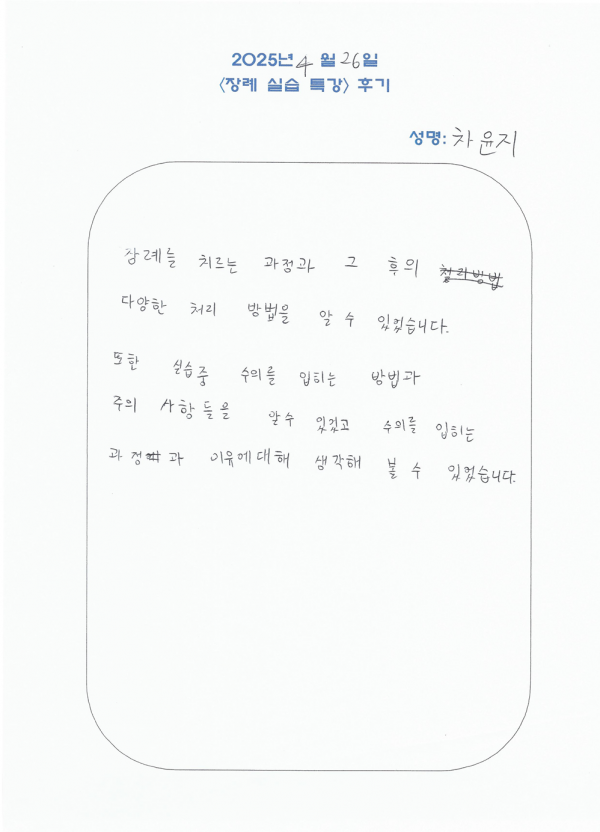 2025년 4월 26일
<장례 실습 특강> 후기
성명: 차윤지
장례를 치르는 과정과 그 후의 처리방법
다양한 처리 방법을 알 수 있었습니다.
또한 실습중 수의를 입히는 방법과
주의 사항들을 알수 있었고 수의를 입히는
과정과 이유에대해 생각해 볼 수 있었습니다.